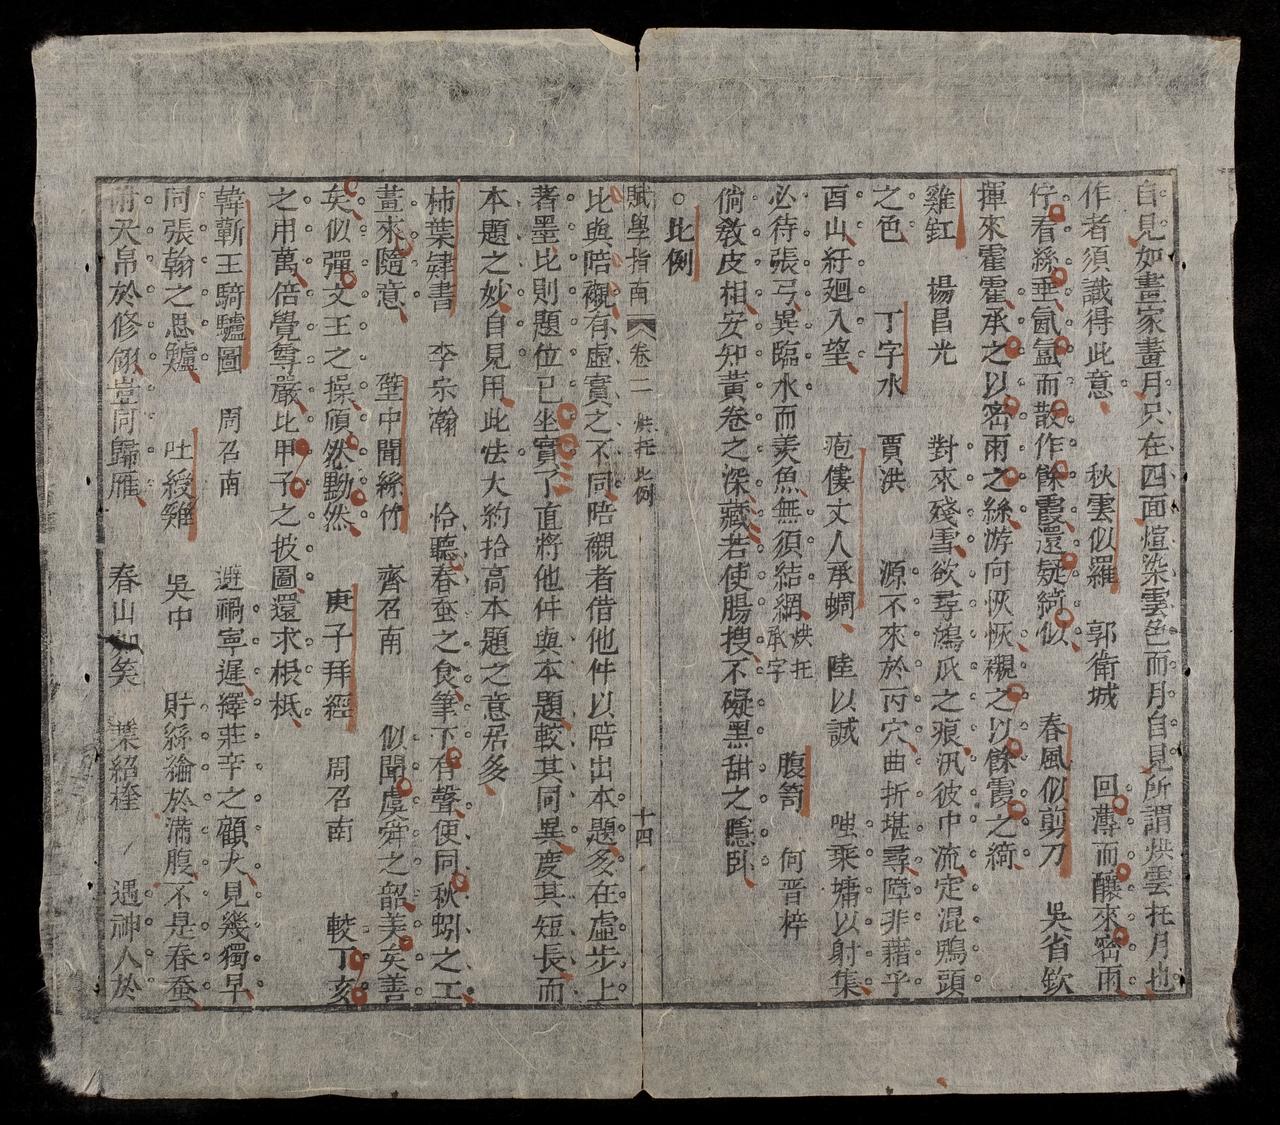 自見如畫家畫月只在四面煊染雲色而月自見所謂烘雲托月也
作者須識得此意　秋雲似羅　郭衛城　回薄而釀來密雨
佇看絲垂氤氳而散作餘霞還疑綺似　春風似剪刀　吳省欽
揮來霍霍承之以密雨之絲游向恢恢襯之以餘霞之綺
雞缸　楊昌光　對來殘雪欲尋鴻爪之痕汎彼中流定混鴨頭
之色　丁字水　賈洪　源不來於丙穴曲折堪尋障非藉乎
酉山紆廻入望　疱僂丈人承蜩　陸以諴　呭乘墉以射集
必待張弓異臨水而羨魚無須結網烘托承字　腹笥　何晋梓
倘教皮相安知黃卷之深藏若使腸搜不礙黑甜之隱卧
○比例
賦學指南　卷二　烘托　比例　十四
比與陪襯有虛實之不同陪襯者借他件以陪出本題多在虛步上
著墨比則題位已坐實了直將他件與本題較其同異度其短長而
本題之妙自見用此法大約抬高本題之意居多
柿葉肄書　李宗瀚　恰聽春蚕之食筆下有聲便同秋蚓之工
畫來隨意　壁中聞絲竹　齊召南　似聞虞舜之韶美矣善
矣似彈文王之操頎然黝然　庚子拜經　周召南　較丁亥
之用萬倍覺尊嚴比甲子之披圖還求根柢
韓蘄王騎驢圖　周召南　避禍寧遲繹莊辛之顧犬見幾獨早
同張翰之思鱸　吐綬雞　吳中　貯絲綸於滿腹不是春蚕
附犬帛於修翎豈同歸雁　春山如笑　葉紹楏　遇神人於